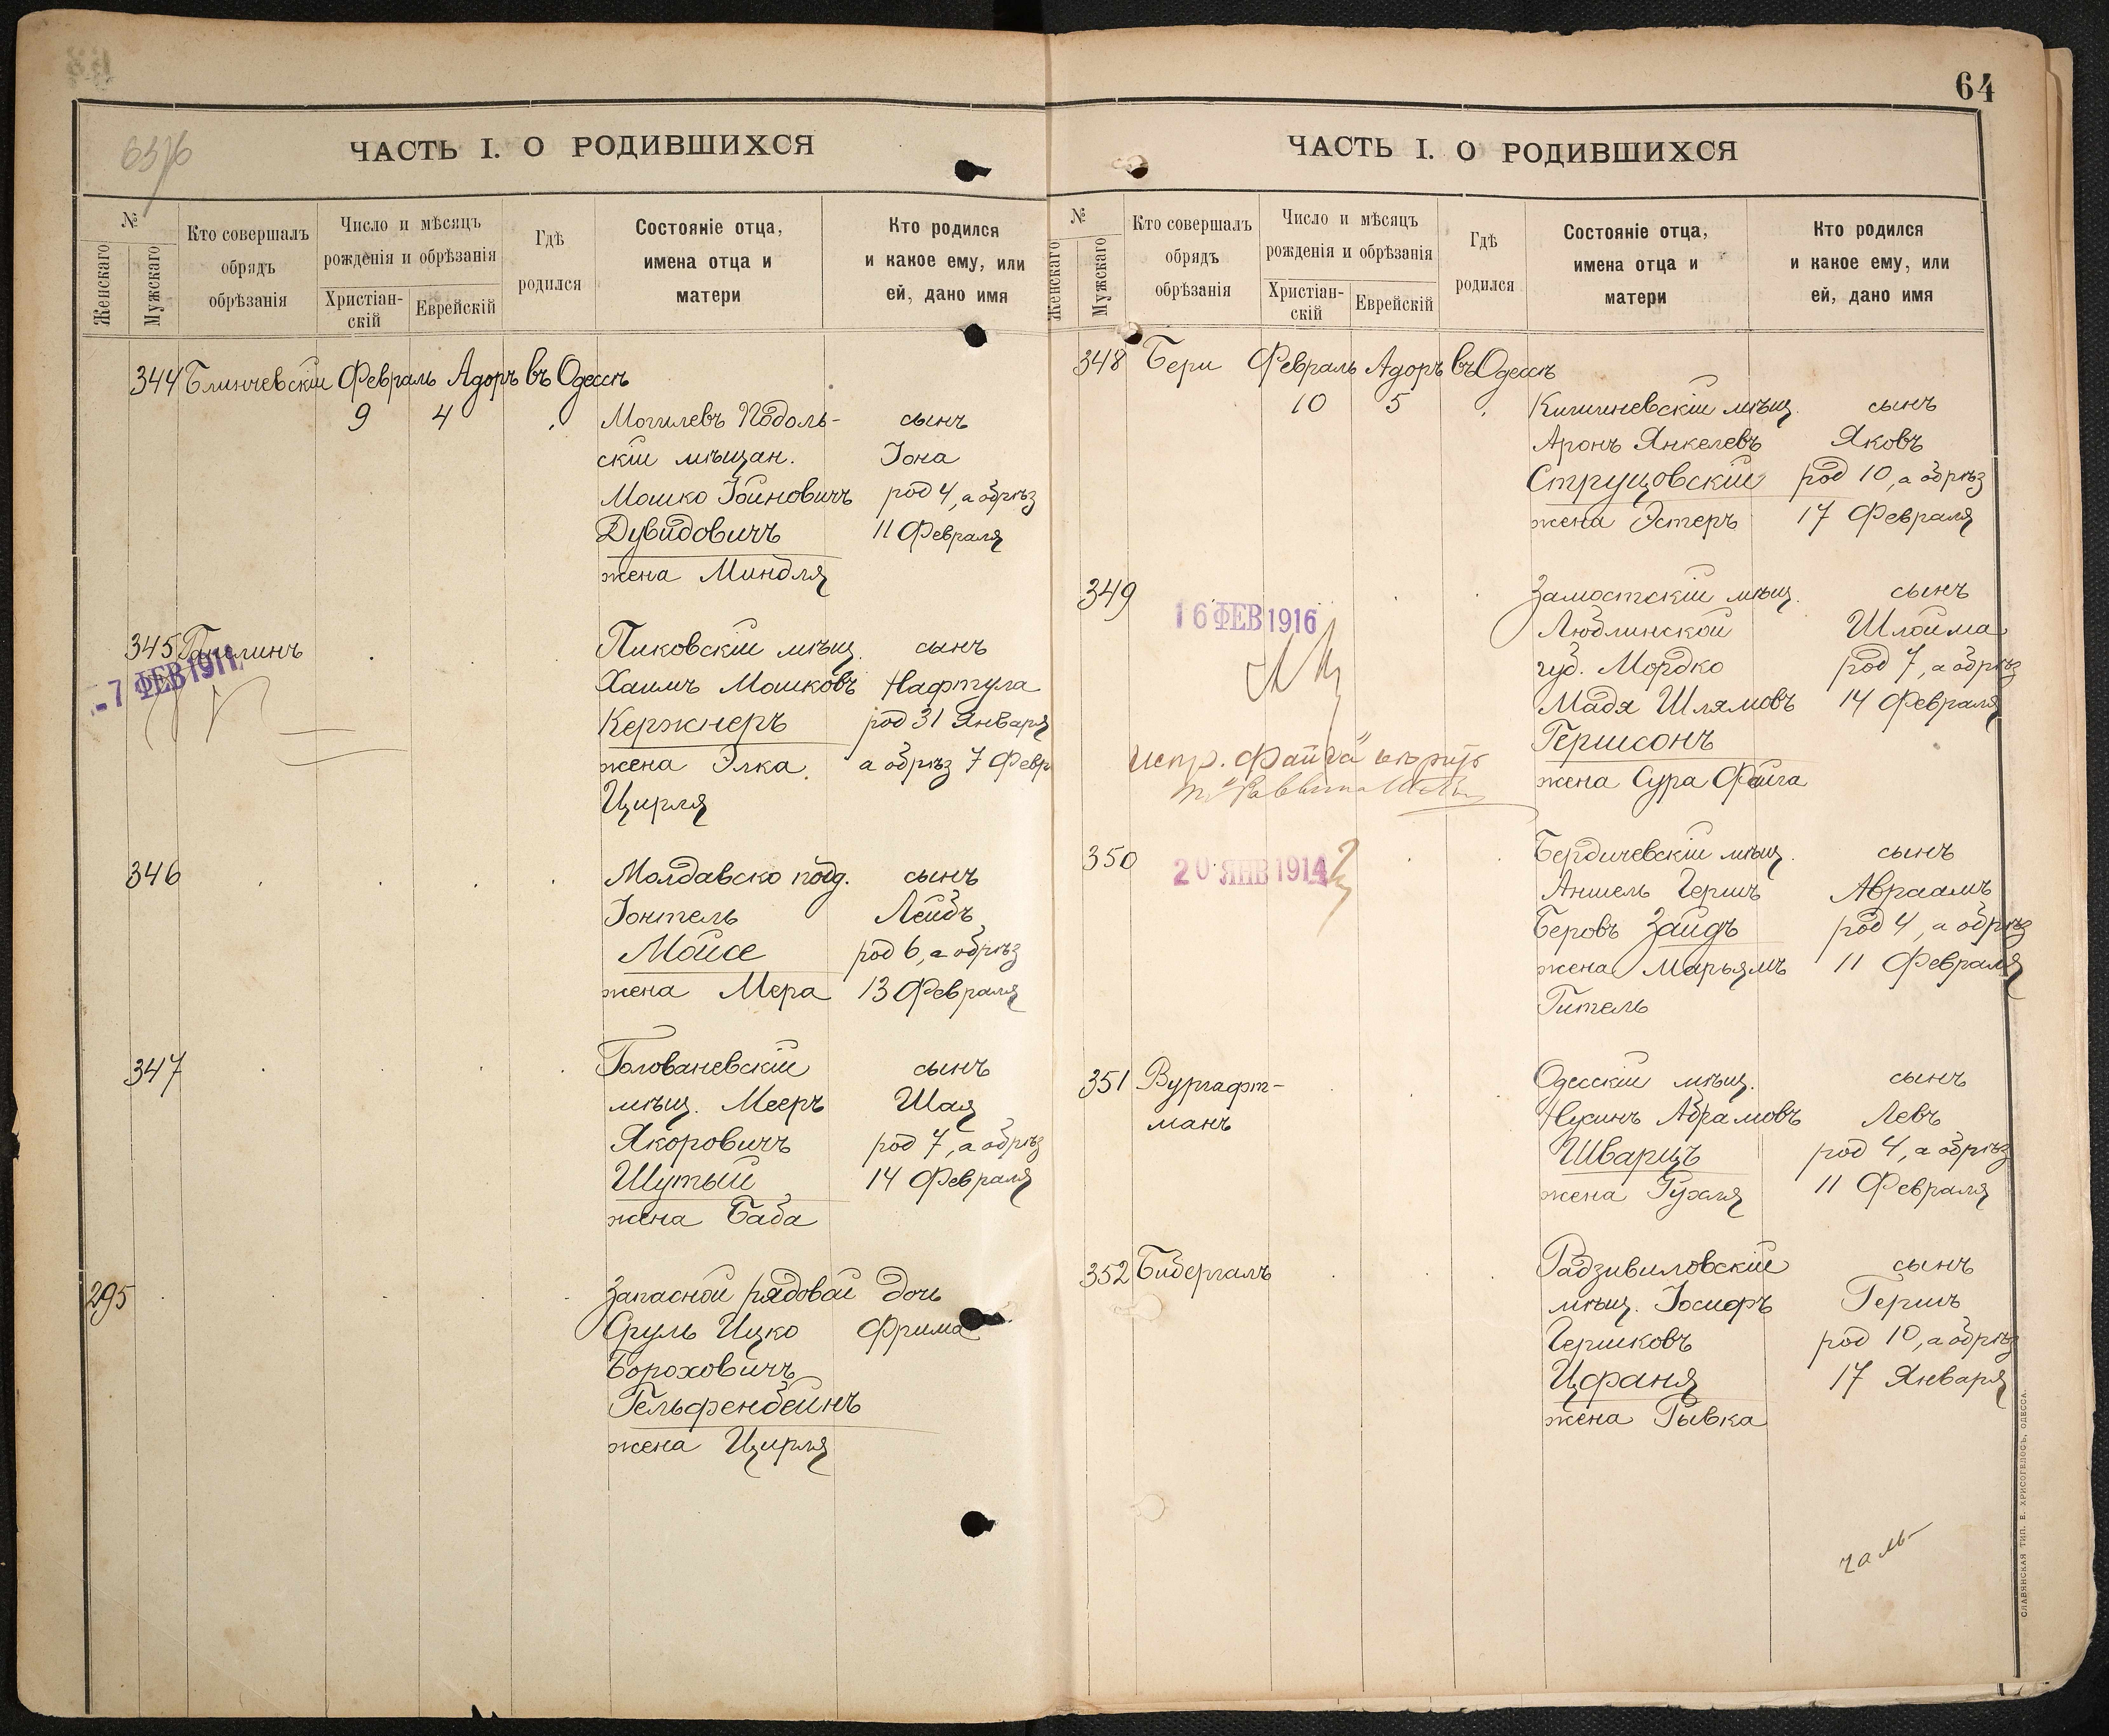 64
ЧАСТЬ I. О РОДИВШИХСЯ
№
Женскаго
Мужскаго
Кто совершалъ
обрядъ
обрѣзанія
Число и мѣсяцъ
рожденія и обрѣзанія
Христіан-
скій
Еврейскій
Гдѣ
родился
Состояніе отца,
имена отца и
матери
Кто родился
и какое ему, или
ей, дано имя
344 Блинчевскій Февраль Адоръ въ Одессѣ
9 4 Могилевъ Подоль- сынъ
скій мѣщан. Іона
Мошко Іойновичъ род 4, а обрѣз
Дувидовичъ 11 Февраля
жена Миндля
345 Пиковскій мѣщ. сынъ
-7 ФЕВ 1911
Хаимъ Мошковъ Нафтула
Кержнеръ род 31 Января
жена Элка а обрѣз 7 Февр
Цирля
346 Молдавско под. сынъ
Іонтель Лейбъ
Мойсе род 6, а обрѣз
жена Мера 13 Февраля
347 Голованевскій сынъ
мѣщ. Мееръ Шая
род 7, а обрѣз
Шутый 14 Февраля
жена Баба
295 Запасной рядовой дочь
Сруль Ицко Фрима
Бороховичъ
Гельфенбейнъ
жена Цирля
ЧАСТЬ I. О РОДИВШИХСЯ
№
Женскаго
Мужскаго
Кто совершалъ
обрядъ
обрѣзанія
Число и мѣсяцъ
рожденія и обрѣзанія
Христіан-
скій
Еврейскій
Гдѣ
родился
Состояніе отца,
имена отца и
матери
Кто родился
и какое ему, или
ей, дано имя
348 Бери Февраль Адоръ въ Одессѣ
10 5 Кишиневскій мѣщ. сынъ
Аронъ Янкелевъ Яковъ
Струцовскій род 10, а обрѣз
жена Эстеръ 17 Февраля
349 Замостскій мѣщ. сынъ
16 ФЕВ 1916
Люблинской Шлойма
губ. Мордко род 7, а обрѣз
Мадя Шлямовъ 14 Февраля
Гершонъ
испр. „Файга"
жена Сура Файга
350 Бердичевскій мѣщ. сынъ
20 ЯНВ 1914
Аншель Гершъ Авраамъ
Беровъ Зайдъ род 4, а обрѣз
жена Марьямъ 11 Февраля
Гитель
351 Вургафт- Одесскій мѣщ. сынъ
манъ Нухинъ Абрамовъ Левъ
Шварцъ род 4, а обрѣз
жена Рухля 11 Февраля
352 Бибергалъ Радзивиловскій сынъ
мѣщ. Іосифъ Гершъ
Гершковъ род 10, а обрѣз
Цфаня 17 Января
жена Рывка
СЛАВЯНСКАЯ ТИП. Е. ХРИСОГЕЛОСЪ, ОДЕССА.